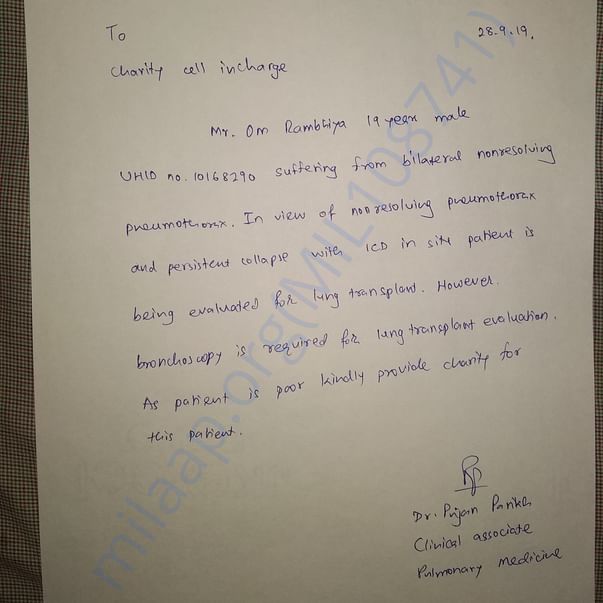 To
28.9.19.
Charity cell incharge
Mr. Om Rambhiya 19 years male
UHID no. 10168290 suffering from bilateral nonresolving
pneumothorax. In view of nonresolving pneumothorax
and persistent collapse with ICD in situ patient is
being evaluated for lung transplant. However.
bronchoscopy is required for lung transplant evaluation.
As patient is poor kindly provide charity for
this patient.
Dr. Pujan Parikh
Clinical associate
Pulmonary medicine
milaap.org(MIL108741)